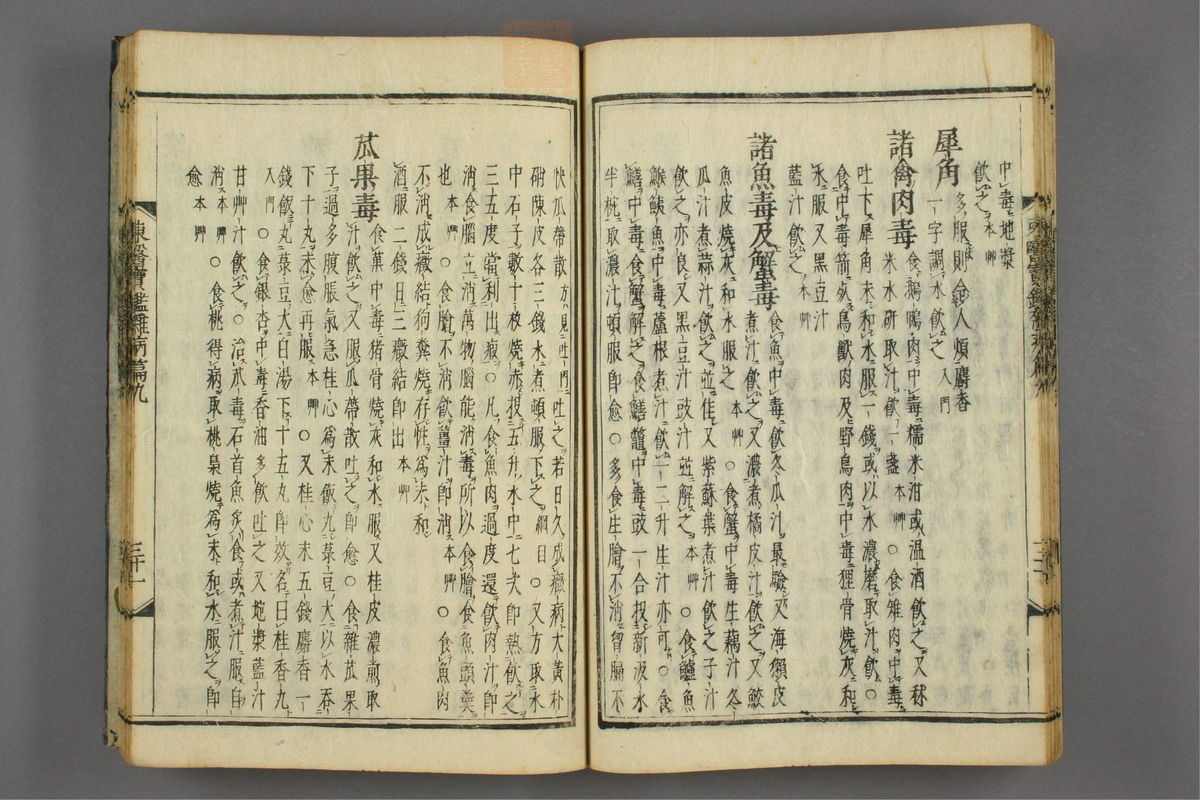 中毒地漿
飲之 本艸
犀角 多服則令人煩麝香
一字調水飲之 入門
諸禽肉毒 食鵝鴨肉中毒糯米泔或温酒飲之又秫
米水研取汁飲一盞 本艸 ○食雉肉中毒
吐下犀角末和水服一錢或以水濃磨取汁飲○
食中毒箭死鳥獸肉及野鳥肉中毒狸骨燒灰和
水服又黑豆汁
藍汁飲之 本艸
諸魚毒及蟹毒 食魚中毒飲冬瓜汁最驗又海獺皮
煮汁飲之又濃煮橘皮汁飲之又鮫
魚皮燒灰和水服之 本艸 ○食蟹中毒生藕汁冬
瓜汁煮蒜汁飲之並佳又紫蘇葉煮汁飲之子汁
飲之亦良又黑豆汁豉汁並解之 本艸 ○食鱸魚
鯸鮧魚中毒蘆根煮汁飲一二升生汁亦可○食
鱔中毒食蟹解之食鱔鼈中毒豉一合投新汲水
半椀取濃汁頓服即愈○多食生膾不消胷膈不
快瓜蔕散 方見吐門 吐之若日久成癥病大黄朴
硝陳皮各三錢水煮頓服下之 綱目 ○又方取水
中石子數十枚燒赤投五升水中七次即熱飲之
三五度當利出瘕○凡食魚肉過度還飲肉汁即
消食腦立消萬物腦能消毒所以食膾食魚頭羹
也 本艸 ○食膾不消飲薑汁即消 本艸 ○食魚肉
不消成癥結狗糞燒存性爲末和
酒服二錢日三癥結即出 本艸
苽果毒 食菓中毒猪骨燒灰和水服又桂皮濃煎取
汁飲之又服瓜蔕散吐之即愈○食雜苽果
子過多腹脹氣急桂心爲末飯丸菉豆大以水呑
下十丸未愈再服 本艸 ○又桂心末五錢麝香一
錢飯丸菉豆大白湯下十五丸即效名曰桂香丸
入門 ○食銀杏中毒香油多飲吐之又地漿藍汁
甘艸汁飲之○治苽毒石首魚炙食或煮汁服即
消 本艸 ○食桃得病取桃梟燒爲末和水服之即
愈 本艸
東醫寶鑑雜病篇九
三十一